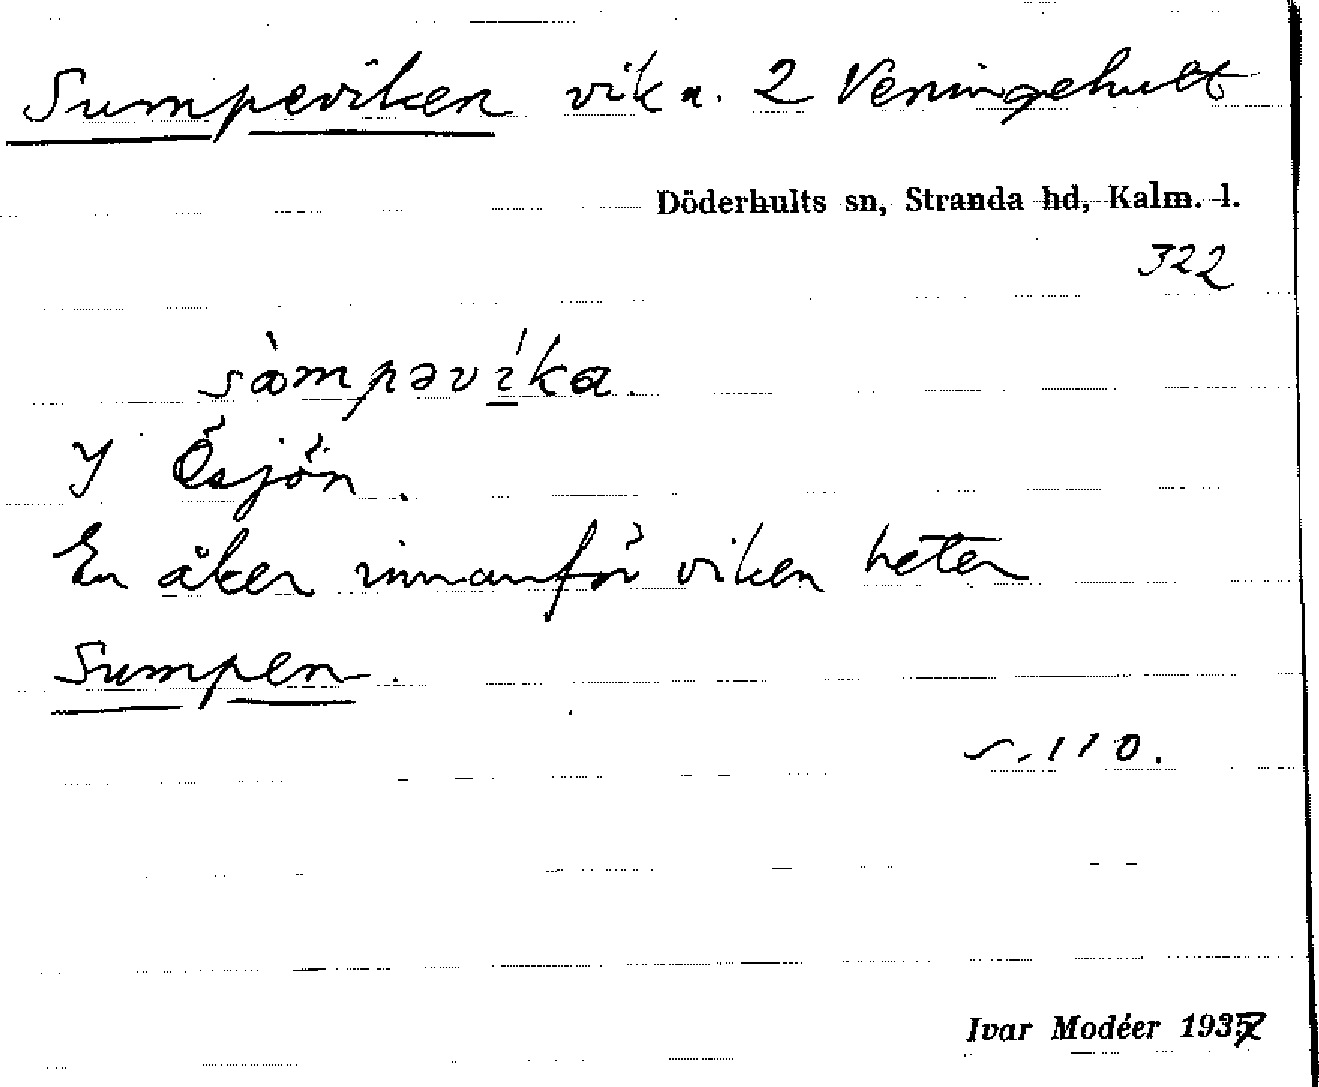 Sumpeviken vik n. 2 Veningehult
Döderhults sn, Stranda hd, Kalm. l.
322
sòmpəvíka.
I Ösjön.
En åker innanför viken heter
Sumpen.
s. 110.
Ivar Modéer 1937